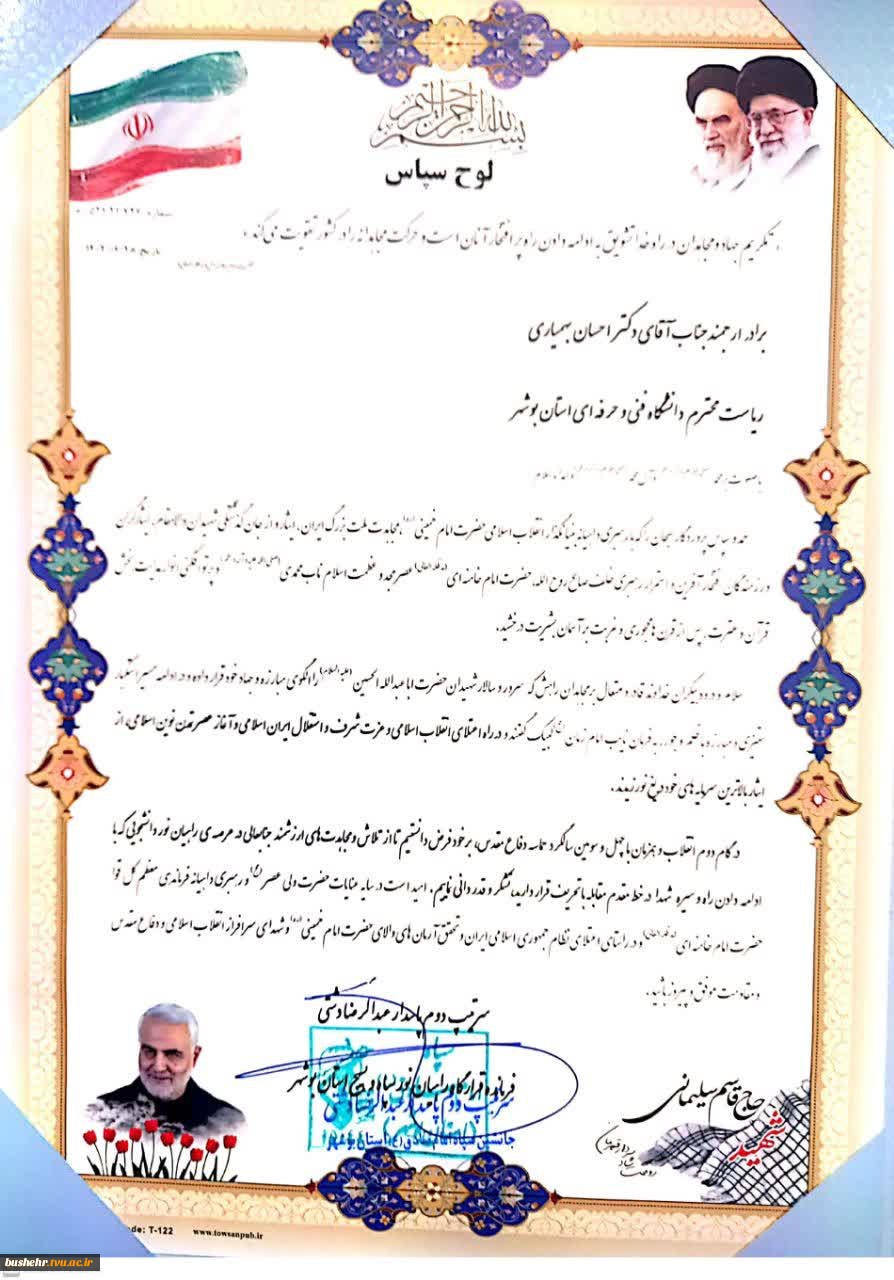 بسم الله الرحمن الرحیم
لوح سپاس
« تکریم جهاد و مجاهدان در راه خدا تشویق به ادامه دادن راه پر افتخار آنان است و حرکت مجاهدانه را در کشور تقویت می‌کند »
برادر ارجمند جناب آقای دکتر احسان بهمیاری
ریاست محترم دانشگاه فنی و حرفه ای استان بوشهر
با صلوات بر محمد
حمد و سپاس پروردگار سبحان را که با رهبری داهیانه بنیانگذار انقلاب اسلامی حضرت امام خمینی (ره)، مجاهدت ملت بزرگ ایران، ایثار و از جان گذشتگی شهیدان والامقام، ایثارگران
و رزمندگان افتخار آفرین و استمرار رهبری خلف صالح روح الله، حضرت امام خامنه ای (مد ظله العالی) عصر مجد و عظمت اسلام ناب محمدی و پرتو افکنی انوار هدایت بخش
قرآن و عترت، پس از قرن ها مهجوری و غربت بر آسمان بشریت درخشید.
سلام و درود بیکران خداوند قادر و متعال بر مجاهدان راهش که سرور و سالار شهیدان حضرت اباعبدالله الحسین (علیه السلام) را الگوی مبارزه و جهاد خود قرار داده و در ادامه مسیر استکبار
ستیزی و مبارزه با ظلم و جور، به فرمان نایب امام زمان لبیک گفتند و در راه اعتلای انقلاب اسلامی و عزت شرف و استقلال ایران اسلامی و آغاز عصر تمدن نوین اسلامی، از
ایثار بالاترین سرمایه های خود دریغ نورزیدند.
در گام دوم انقلاب و همزمان با چهل و سومین سالگرد حماسه دفاع مقدس، بر خود فرض دانستیم تا از تلاش و مجاهدت های ارزشمند جنابعالی در عرصه ی راهیان نور دانشجویی که با
ادامه دادن راه و سیره شهدا در خط مقدم مقابله با تحریف قرار دارید، تشکر و قدردانی نماییم. امید است در سایه عنایات حضرت ولی عصر (عج) و رهبری داهیانه فرماندهی معظم کل قوا
حضرت امام خامنه ای (مد ظله العالی) و در راستای اعتلای نظام جمهوری اسلامی ایران و تحقق آرمان های والای حضرت امام خمینی (ره) و شهدای سرافراز انقلاب اسلامی و دفاع مقدس
و مقاومت موفق و پیروز باشید.
سرتیپ دوم پاسدار عبدالرضا دشتی
فرمانده قرارگاه راهیان نور سپاه و بسیج استان بوشهر
سرتیپ دوم پاسدار عبدالرضا دشتی
جانشین سپاه امام صادق (ع) استان بوشهر
حاج قاسم سلیمانی
شهید
T-122
www.towsanpub.ir
bushehr.tvu.ac.ir